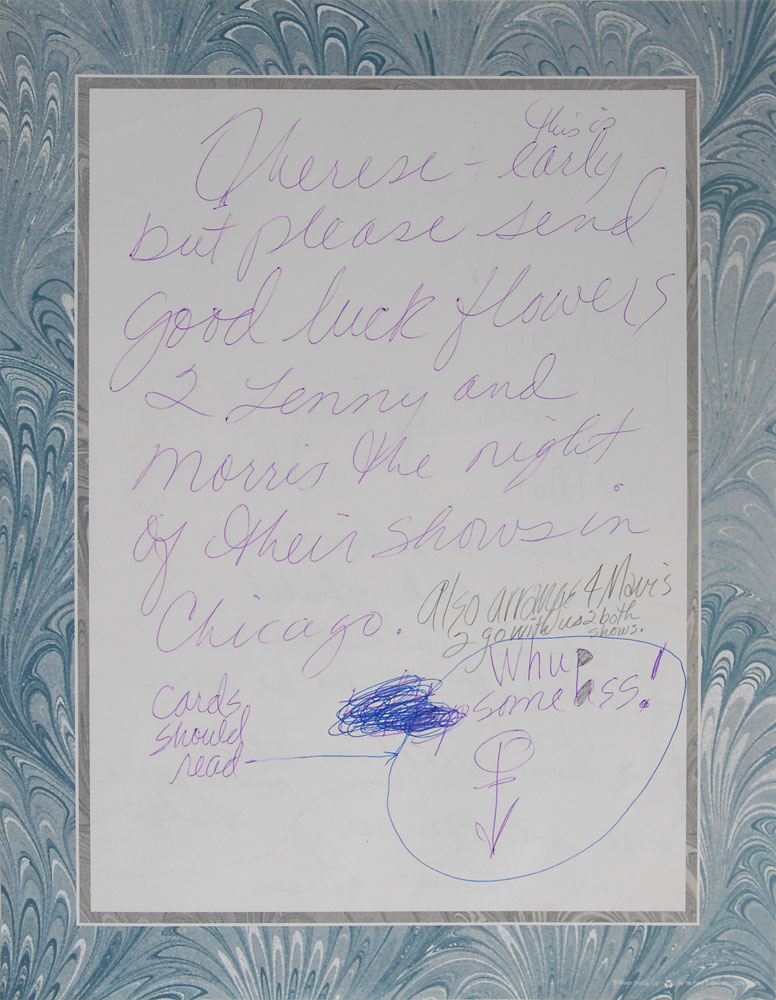 this is
Therese - early
but please send
good luck flowers
2 Lenny and
Morris the night
of their shows in
Chicago.
Also arrange 4 Mavis
2 go with us 2 both
shows.
Cards
should
read
Whup
some ass!